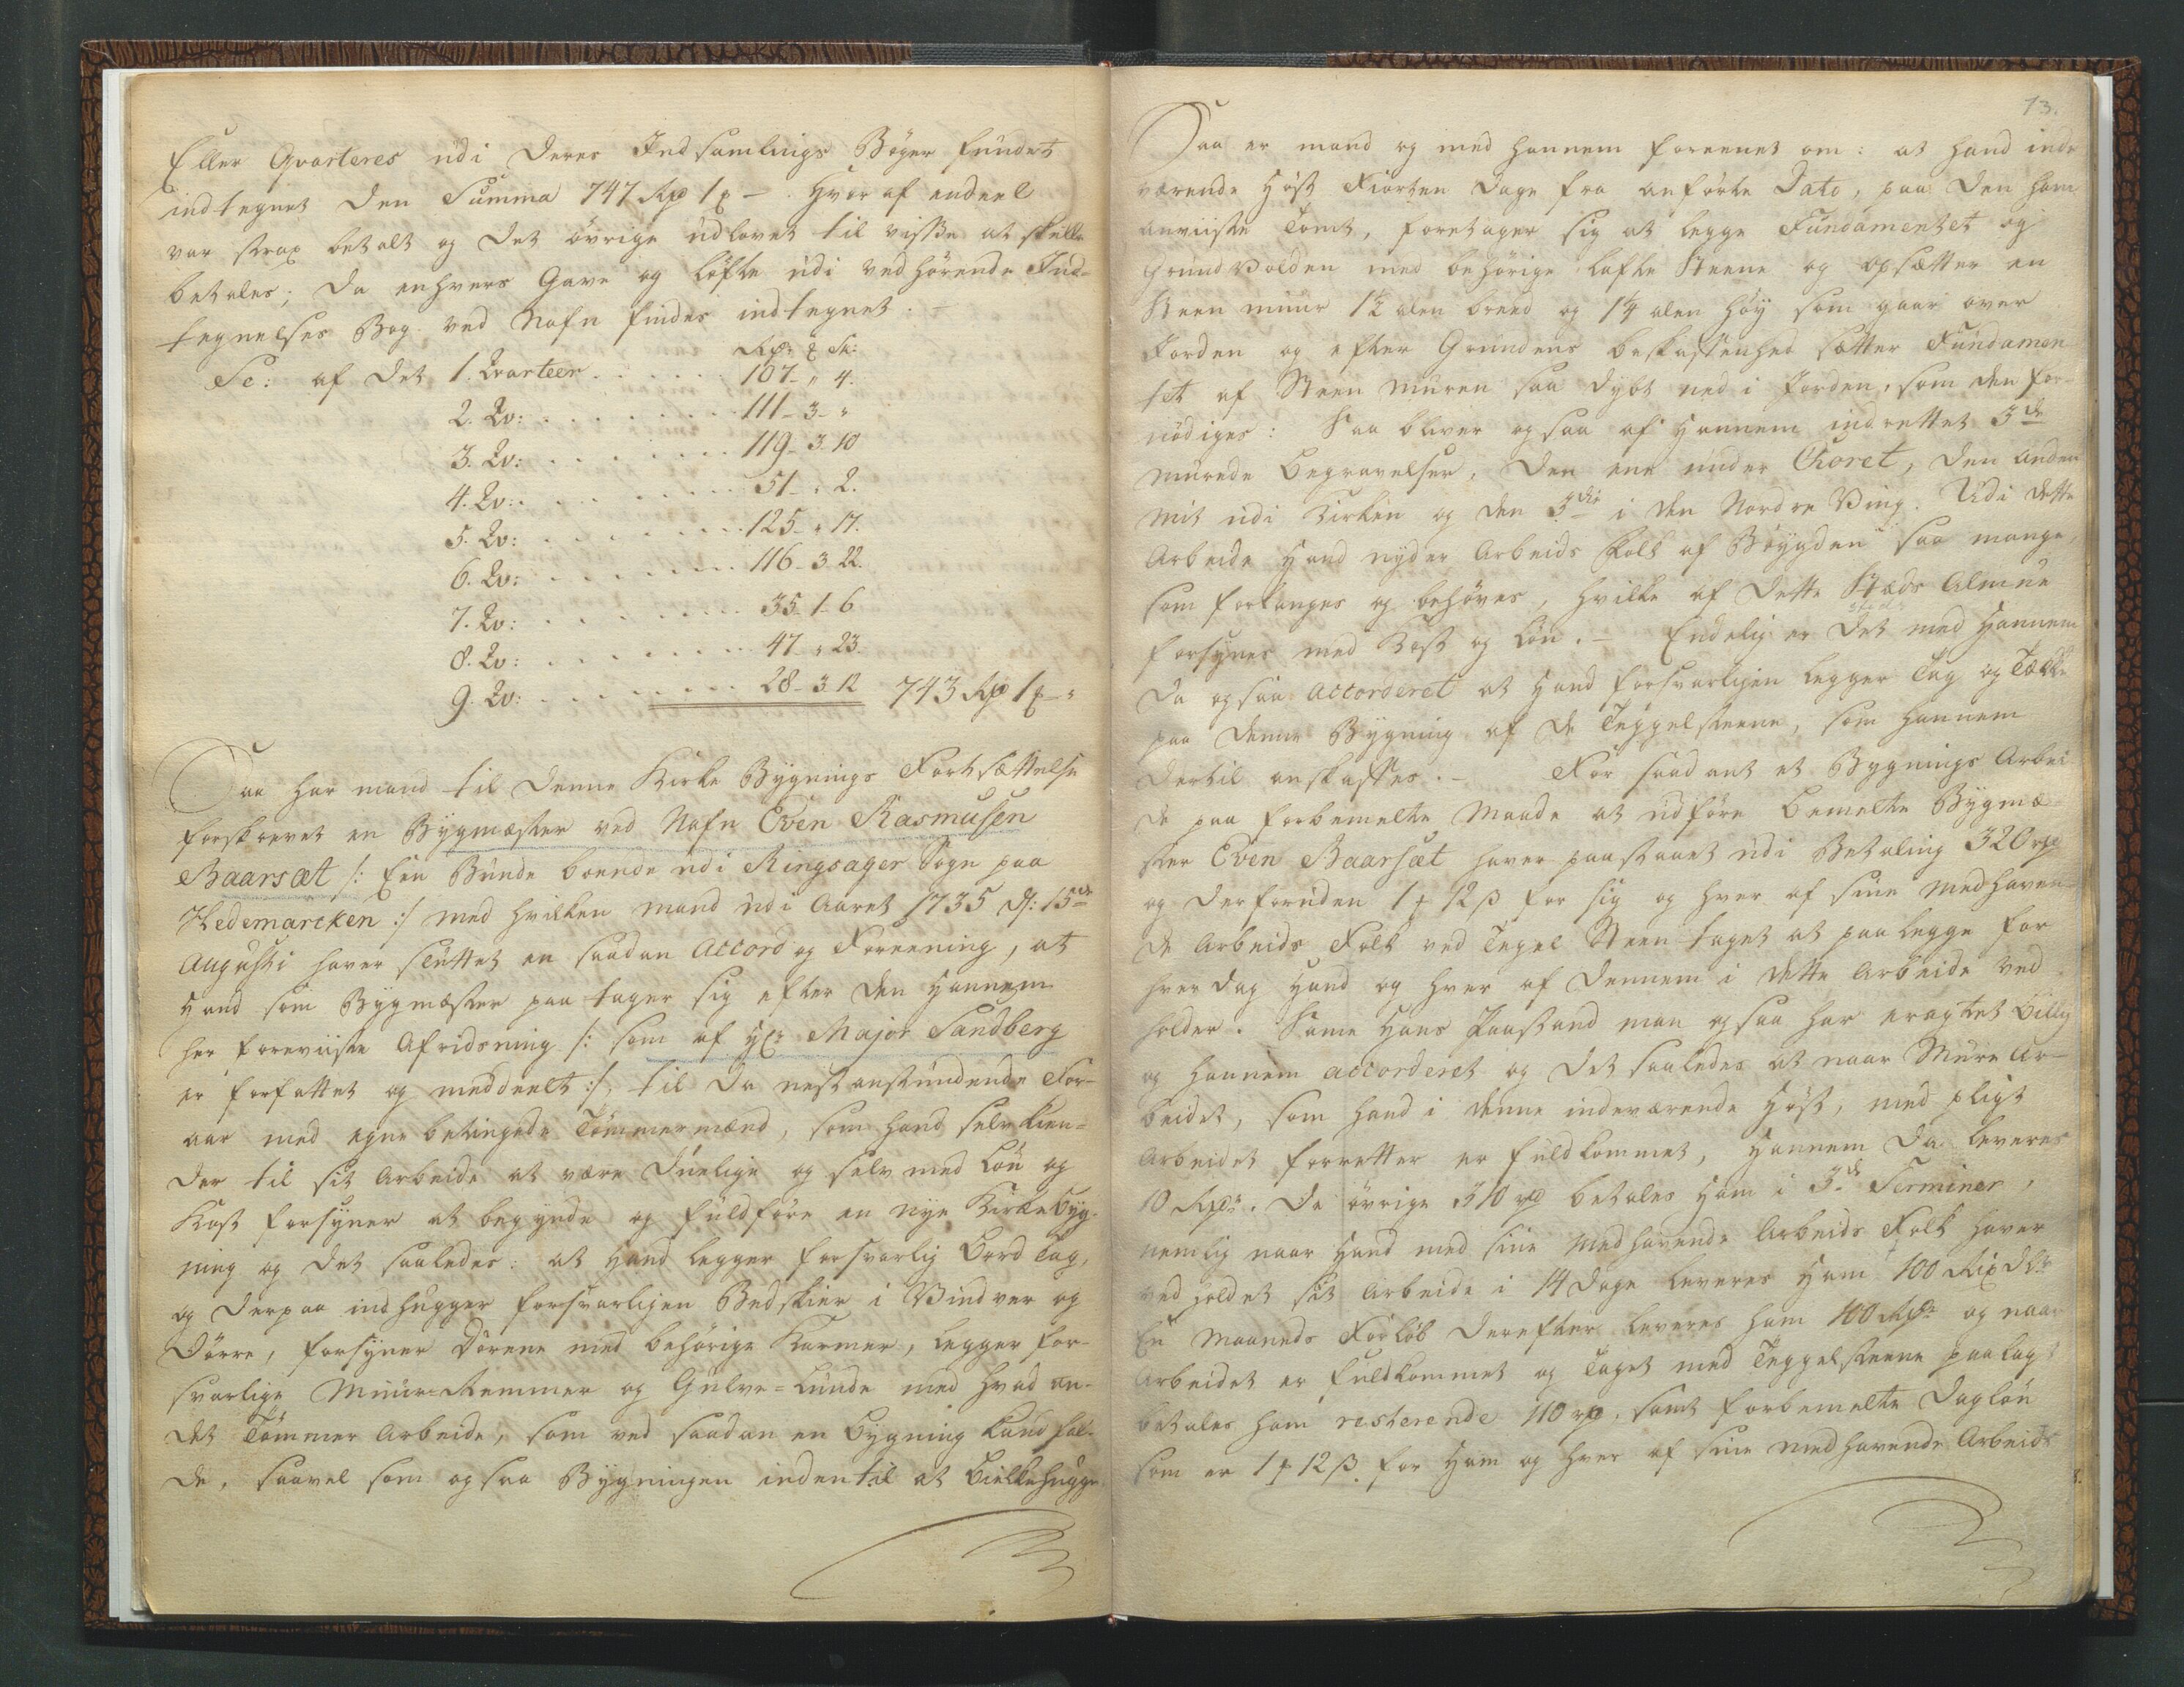 Eller Qvarteres udi deres Indsamlings Bøger fundet
indtegnet den Summa 747 Rdr 1 ₰ – . Hvoraf endeel
var strax betalt og det øvrige udlovet til visse at skulle
betales; da enhvers Gave og Løfte udi vedhørende Ind-
tegnelses Bog ved Nafn findes indtegnet: –
Rdr: ₰ Sk:
Sc: af det 1. Qvarteer . . . . . 107 – " 4.
2. Qv: . . . . . . . 111 – 3 – "
3. Qv: . . . . . . . 119 – 3. 10
4. Qv: . . . . . . . 51 – " 2.
5. Qv: . . . . . . . 125 – " 17.
6. Qv: . . . . . . . 116 – 3. 22.
7. Qv: . . . . . . . 35 – 1 – 6
8. Qv: . . . . . . . 47 – " 23.
9. Qv: . . . . . . . 28 – 3. 12 743 Rdr 1 ₰ – "
Saa har mand til denne Kirke Bygnings Fortsættelse
forskrevet en Bygmæster ved Nafn Even Rasmusen
Baarsæt /: Een Bunde boende udi Ringsager Sogn paa
Hedemarcken :/ med hvilken mand udi Aaret 1735 d: 15de
Augusti haver sluttet en saadan Accord og Foreening, at
Hand som Bygmæster paa tager sig efter den Hannem
her foreviiste Afridsning /: som af Hr: Major Sandberg
er forfattet og meddeelt :/, til da nestanstundende For-
aar med egne betingede Tømmermænd, som hand selv kien-
der til sit Arbeide at være duelige og selv med Løn og
Kost forsyner at begynde og fuldføre en nye Kirke Byg-
ning og det saaledes: at Hand legger forsvarlig Bord Tag,
og derpaa indhugger forsvarligen Bedskier i Vindver og
Dørre, forsyner Dørene med behørige Karmer, legger for-
svarlige Muur-Remmer og Gulve-Lunde med hvad an-
det Tømmer Arbeide, som ved saadan en Bygning kand fal-
de, saavel som ogsaa Bygningen indentil at Biellehugge
13.
Saa er mand og med hannem foreenet om: at hand inde
værende Høst Fiorten dage fra anførte Dato, paa den ham
anviiste Tomt, foretager sig at legge Fundamentet og
Grundvolden med behørige lafte Steene og opsætter en
Steen muur 1½ alen breed og 1¼ alen høy som gaar over
Jorden og efter Grundens beskaffenhed sætter Fundamen
tet af Steen Muren saa dybt ned i Jorden, som den for-
nødiges: Saa bliver ogsaa af Hannem indrettet 3de
murede Begravelser, den ene under Choret, den Anden
mit udi Kirken og den 3die i den Nordre Ving. Udi dette
Arbeide Hand nyder Arbeids Folk af Bøygden saa mange,
som forlanges og behøves, hvilke af dette Stæds Almue
forsynes med Kost og Løn. – Endelig er det med Hannem
da ogsaa Accorderet at Hand forsvarligen legger Tag og Tække
paa denne Bygning af de Teggelsteene, som hannem
dertil anskaffes. – For saadant et Bygnings Arbei-
de paa forbemelte Maade at udføre bemelte Bygmæ-
ster Even Baarsæt haver paastaaet udi Betaling 320 rd
og derforuden 1 ₰ 12 β for sig og hver af sine Medhaven-
de Arbeids Folk ved Tegel Steen taget at paa legge for
hver dag Hand og hver af dennem i dette Arbeide ved
holder. Same Hans Paastand man ogsaa har eragtet billig
og hannem accorderet og det saaledes at naar Mure Ar-
beidet, som hand i denne indeværende Høst, med pligt
Arbeidet forretter er fuldkommet, Hannem da leveres
10 Rdr. De øvrige 310 rd betales Ham i 3de Terminer,
nemlig naar Hand med sine Medhavende Arbeids Folk haver
ved holdet sit Arbeide i 14 dage leveres Ham 100 Rixdlr
En Maaneds Forløb derefter leveres ham 100 Rdr og naar
Arbeidet er fuldkommet og Taget med Teggelsteene paalagt
betales ham resterende 110 rd, samt forbemelte dagløn
som er 1 ₰ 12 β for Ham og hver af sine medhavende Arbeids